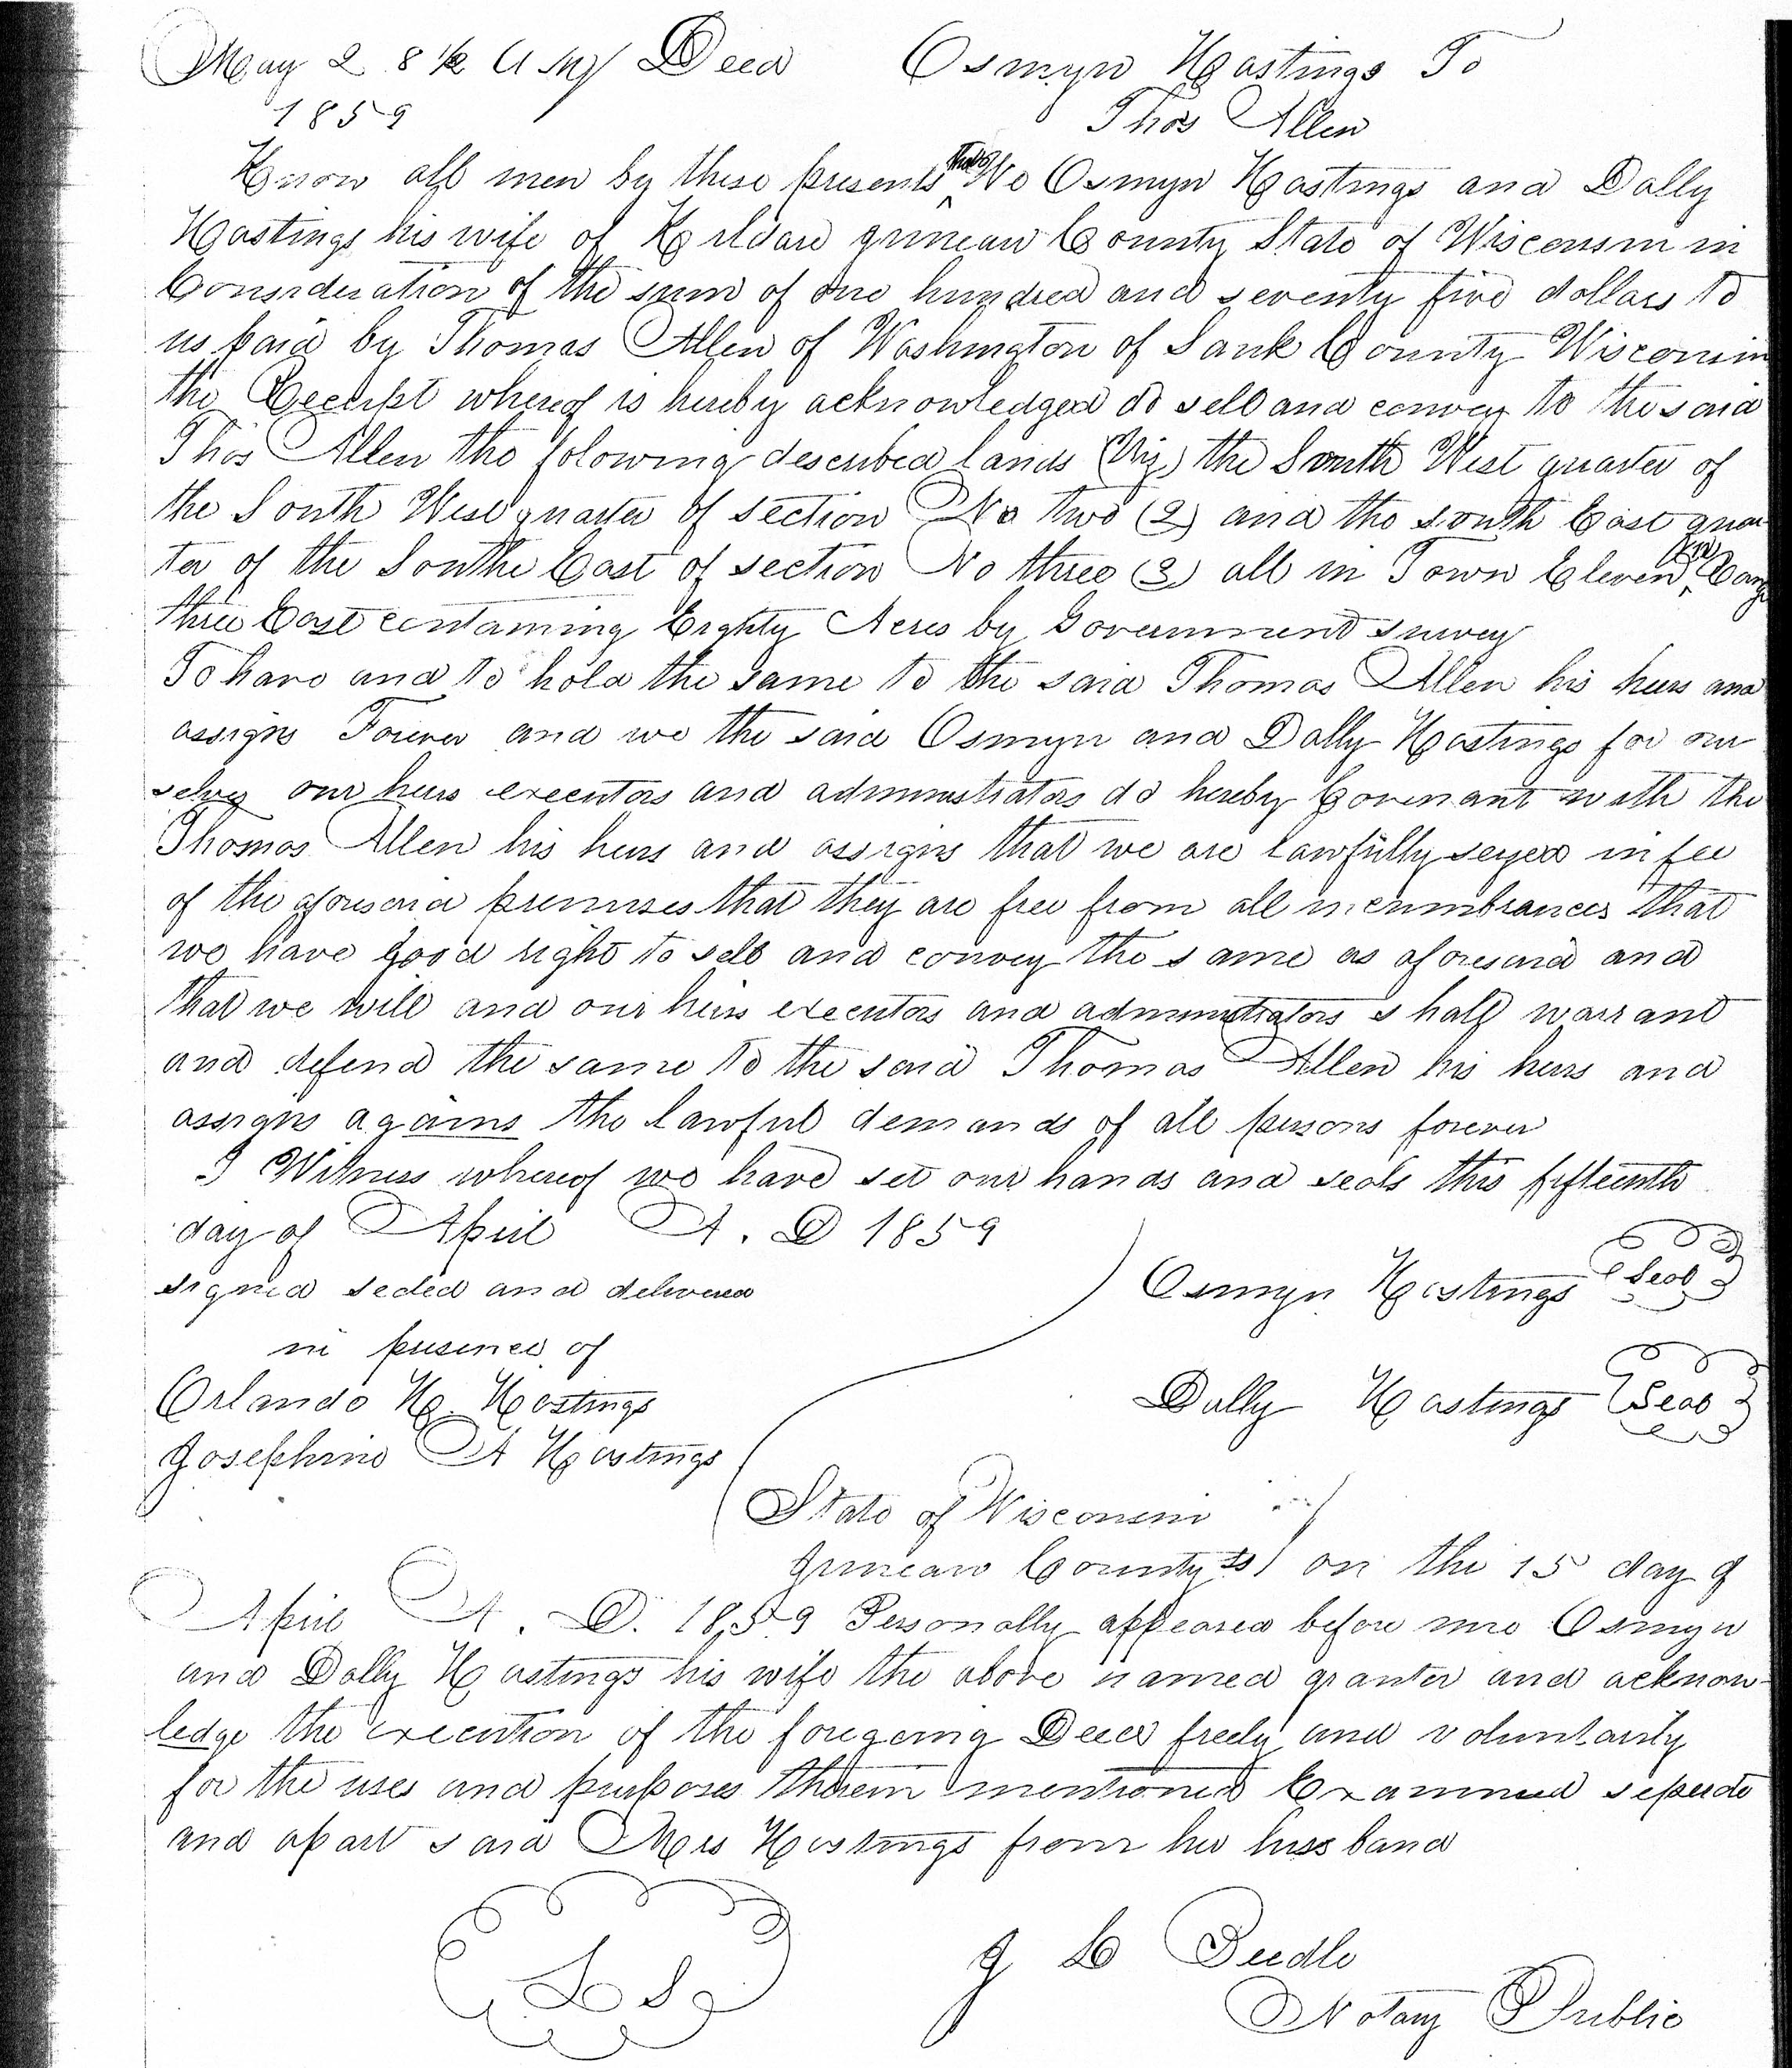 May 2 8 1/2 A M / Deed Osmyn Hastings To
1859 Thos Allen
Know all men by these presents that We Osmyn Hastings and Dolly
Hastings his wife of Kildare Juneau County State of Wisconsin in
Consideration of the sum of one hundred and seventy five dollars to
us paid by Thomas Allen of Washington of Sauk County Wisconsin
the Receipt whereof is hereby acknowledged do sell and convey to the said
Thos Allen the folowing described lands (Viz) the South West quarter of
the South West quarter of section No two (2) and the south East quar
ter of the Southe East of section No three (3) all in Town Eleven Rang
three East containing Eighty Acres by Government survey
To have and to hold the same to the said Thomas Allen his heirs and
assigns Forever and we the said Osmyn and Dolly Hastings for our
selvs our heirs executors and administrators do hereby Covenant with the
Thomas Allen his heirs and assigns that we are lawfully seyed in fee
of the aforesaid premises that they are free from all incumbrances that
we have good right to sell and convey the same as aforesaid and
that we will and our heirs executors and administrators shall warrant
and defend the same to the said Thomas Allen his heirs and
assigns agains the lawful demands of all persons forever
I Witness whereof we have set our hands and seals this fifteenth
day of April A. D 1859
signed sealed and delivered Osmyn Hastings Seal
in presence of
Orlando H. Hastings Dolly Hastings Seal
Josephine A Hastings
State of Wisconsin
Juneau County ss) on the 15 day of
April A. D. 1859 Personally appeared before me Osmyn
and Dolly Hastings his wife the above named granter and acknow-
ledge the execution of the foregoing Deed freely and voluntarily
for the uses and purposes therein mentioned Examined seperate
and apart said Mrs Hastings from her husband
L S J L Beedle
Notary Public